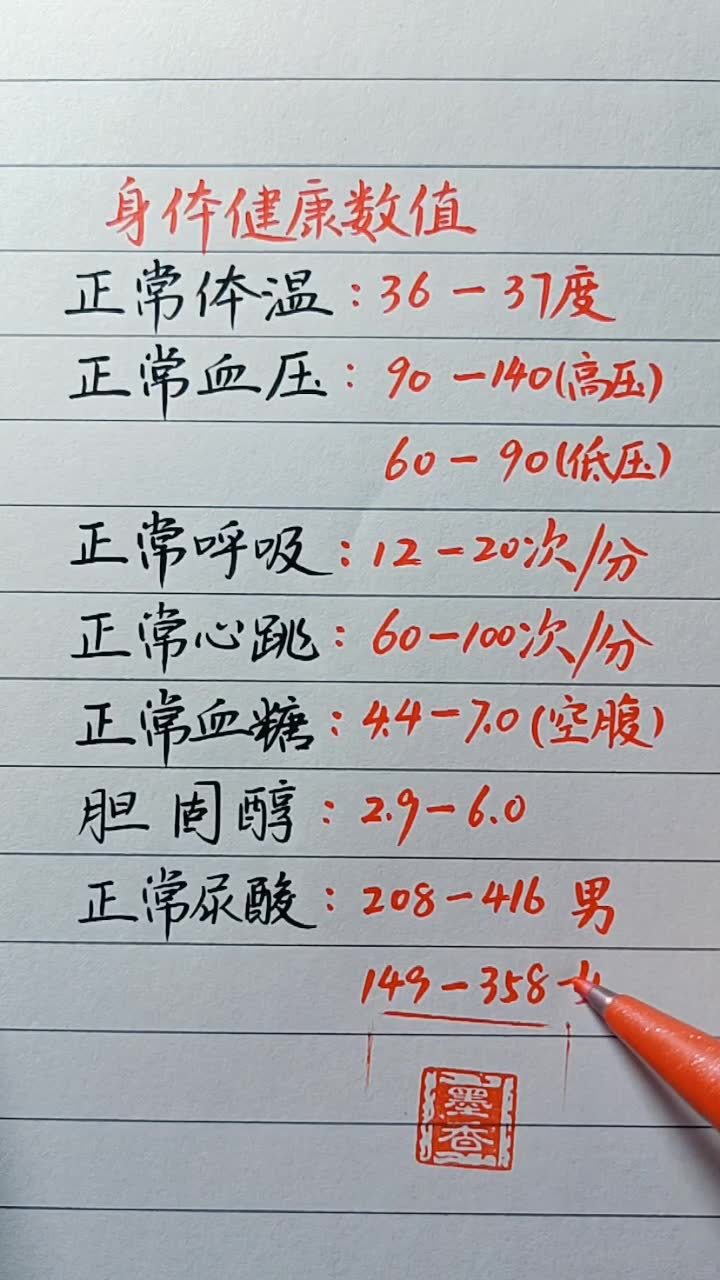 身体健康数值
正常体温：36－37度
正常血压：90－140(高压)
60－90(低压)
正常呼吸：12－20次/分
正常心跳：60－100次/分
正常血糖：4.4－7.0(空腹)
胆固醇：2.9－6.0
正常尿酸：208－416 男
149－358
墨香